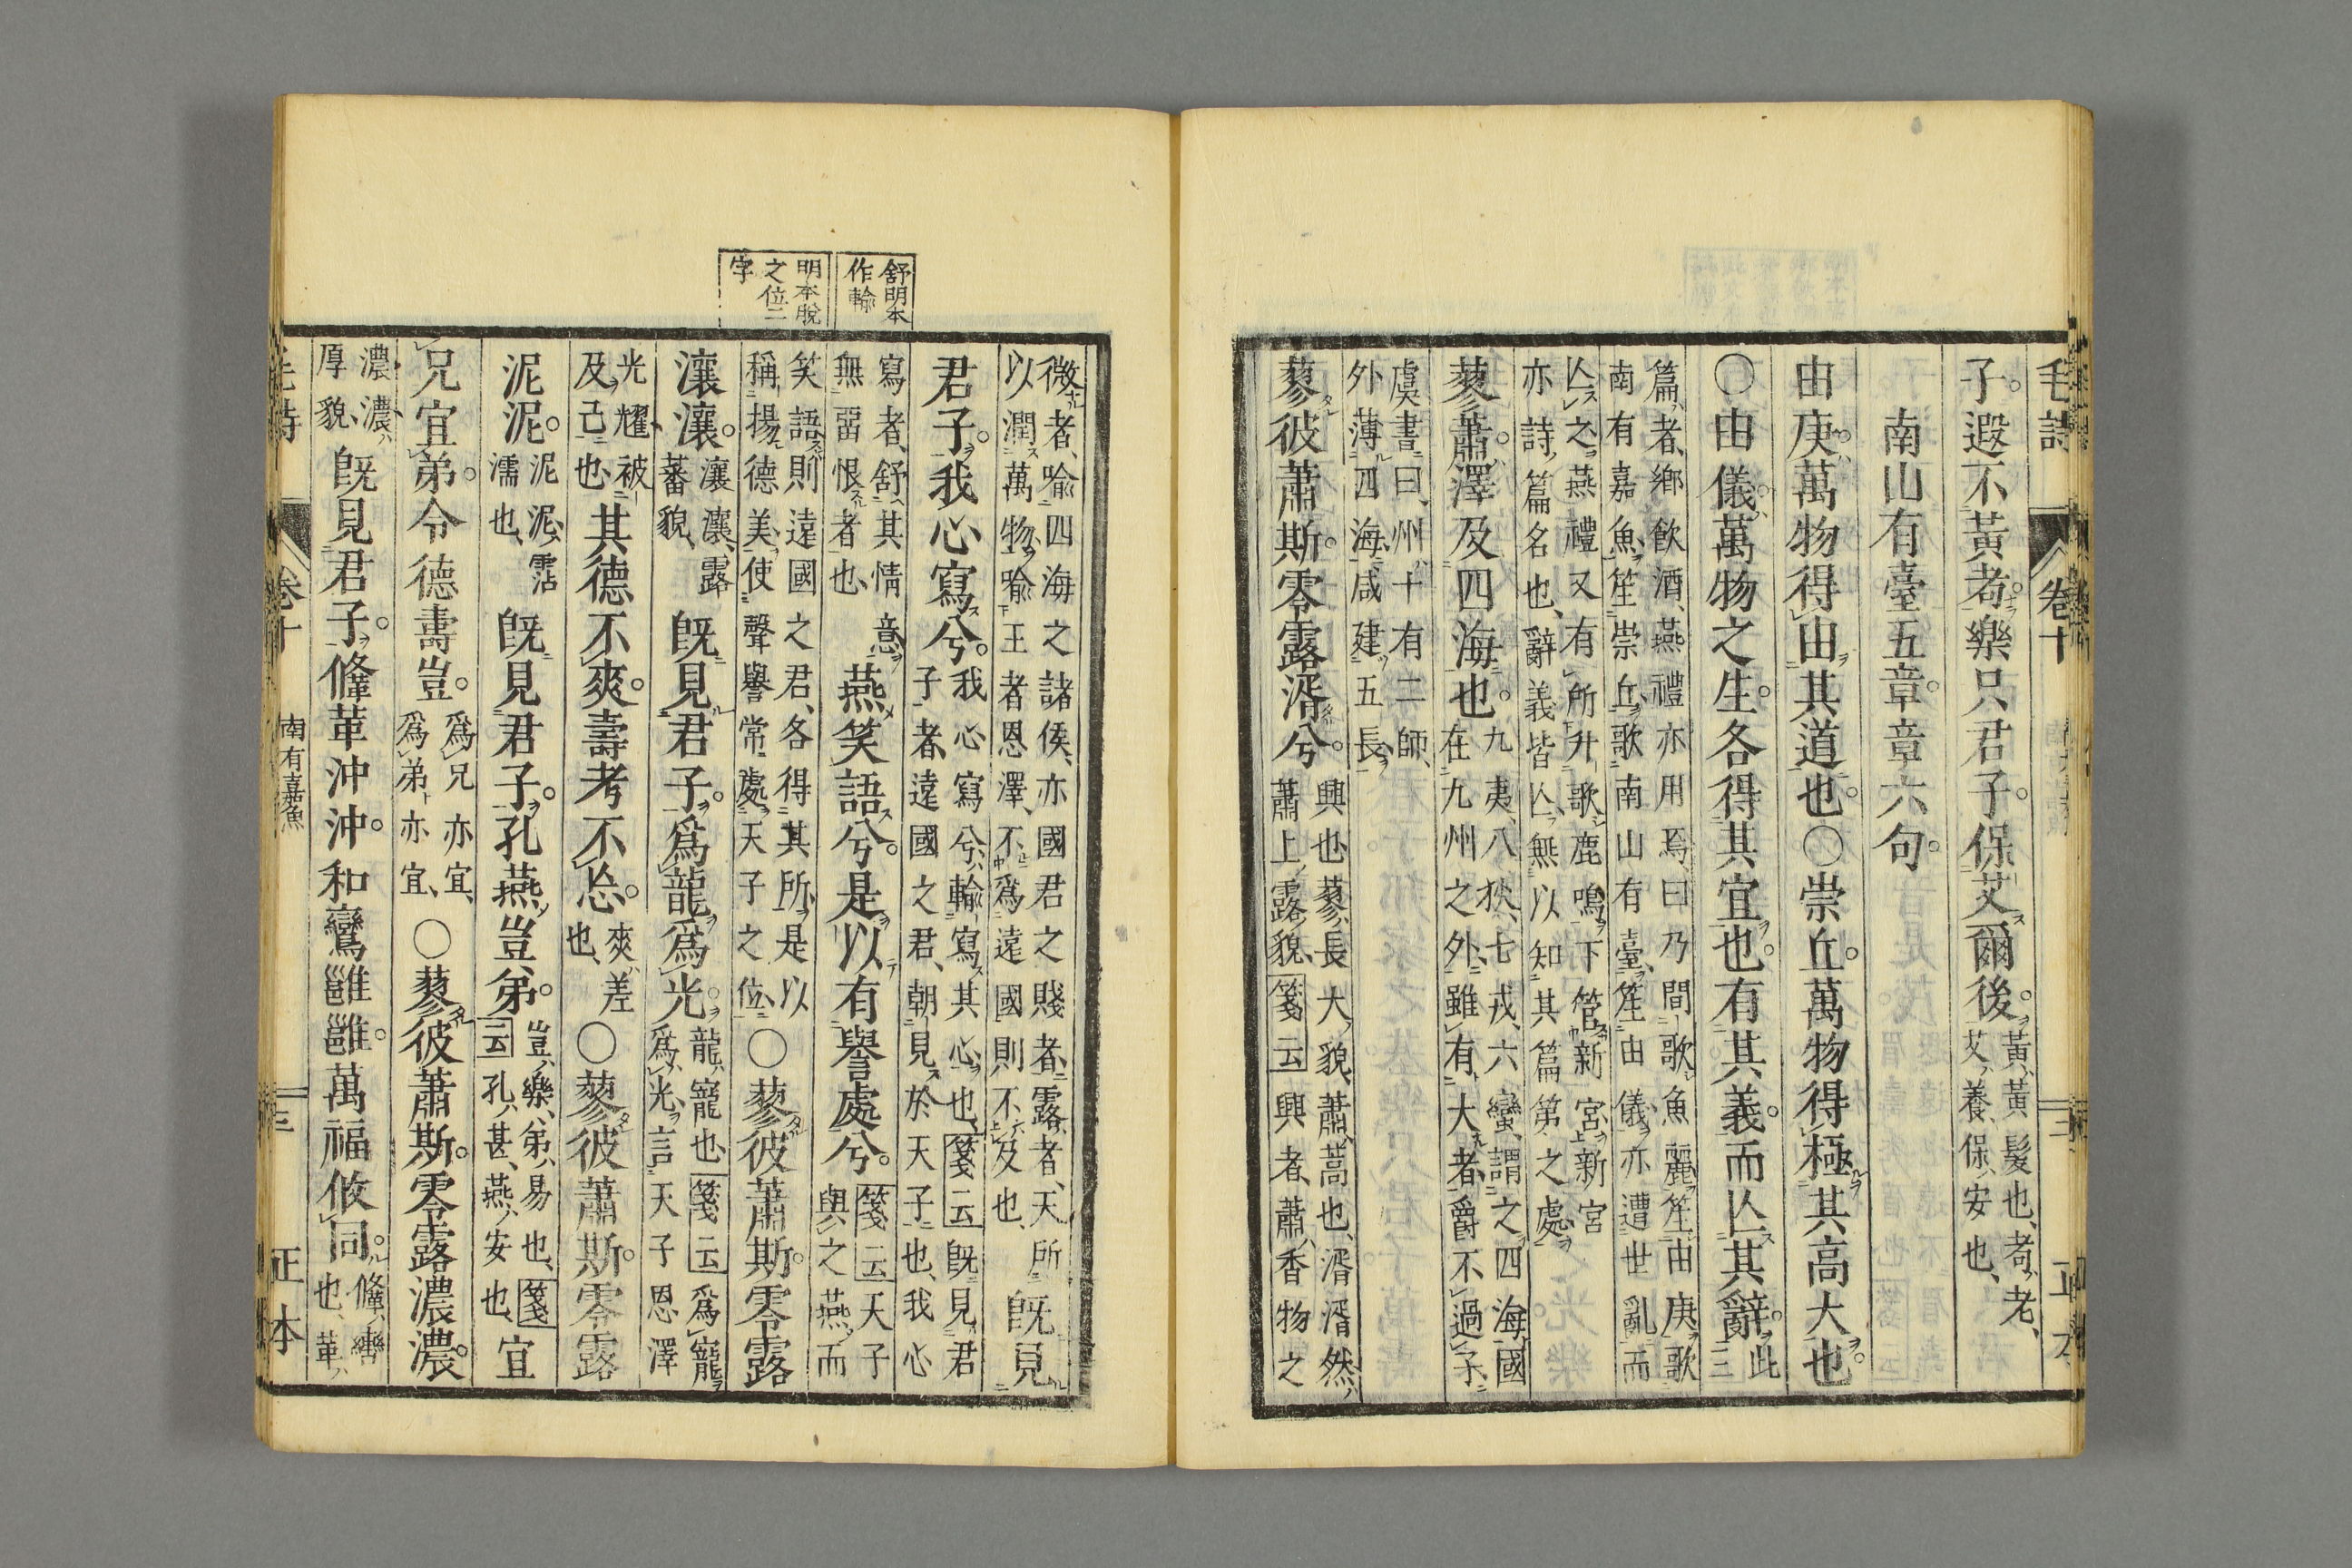 毛詩 卷十 三
子遐不黃耇樂只君子保艾爾後
黃黃髮也耇老
艾養保安也
南山有臺五章章六句
由庚萬物得由其道也〇崇丘萬物得極其高大也
〇由儀萬物之生各得其宜也有其義而亾其辭
此三
篇者鄉飮酒燕禮亦用焉曰乃間歌魚麗笙由庚歌
南有嘉魚笙崇丘歌南山有臺笙由儀亦遭世亂而
亾之燕禮又有所升歌鹿鳴下管新宮新宮
亦詩篇名也辭義皆亾無以知其篇第之處
蓼蕭澤及四海也
九夷八狄七戎六蠻謂之四海國
在九州之外雖有大者爵不過子
虞書曰州十有二師
外薄四海咸建五長
蓼彼蕭斯零露湑兮
興也蓼長大貌蕭蒿也湑湑然
蕭上露貌箋云興者蕭香物之
舒明本
作輸
明本脫
之位二
字
微者喻四海之諸侯亦國君之賤者露者天所
以潤萬物喻王者恩澤不爲遠國則不及也
旣見
君子我心寫兮
我心寫兮輸寫其心也箋云旣見君
子者遠國之君朝見於天子也我心
寫者舒其情意
無畱恨者也
燕笑語兮是以有譽處兮
箋云天子
與之燕而
笑語則遠國之君各得其所是以
稱揚德美使聲譽常處天子之位
〇蓼彼蕭斯零露
瀼瀼
瀼瀼露
蕃貌
旣見君子爲龍爲光
龍寵也箋云爲寵
爲光言天子恩澤
光耀被
及己也
其德不爽壽考不忘
爽差
也
〇蓼彼蕭斯零露
泥泥
泥泥霑
濡也
旣見君子孔燕豈弟
豈樂弟易也箋
云孔甚燕安也
宜
兄宜弟令德壽豈
爲兄亦宜
爲弟亦宜
〇蓼彼蕭斯零露濃濃
濃濃
厚貌
旣見君子鞗革沖沖和鸞雝雝萬福攸同
鞗轡
也革
毛詩 卷十 南有嘉魚 三 正本